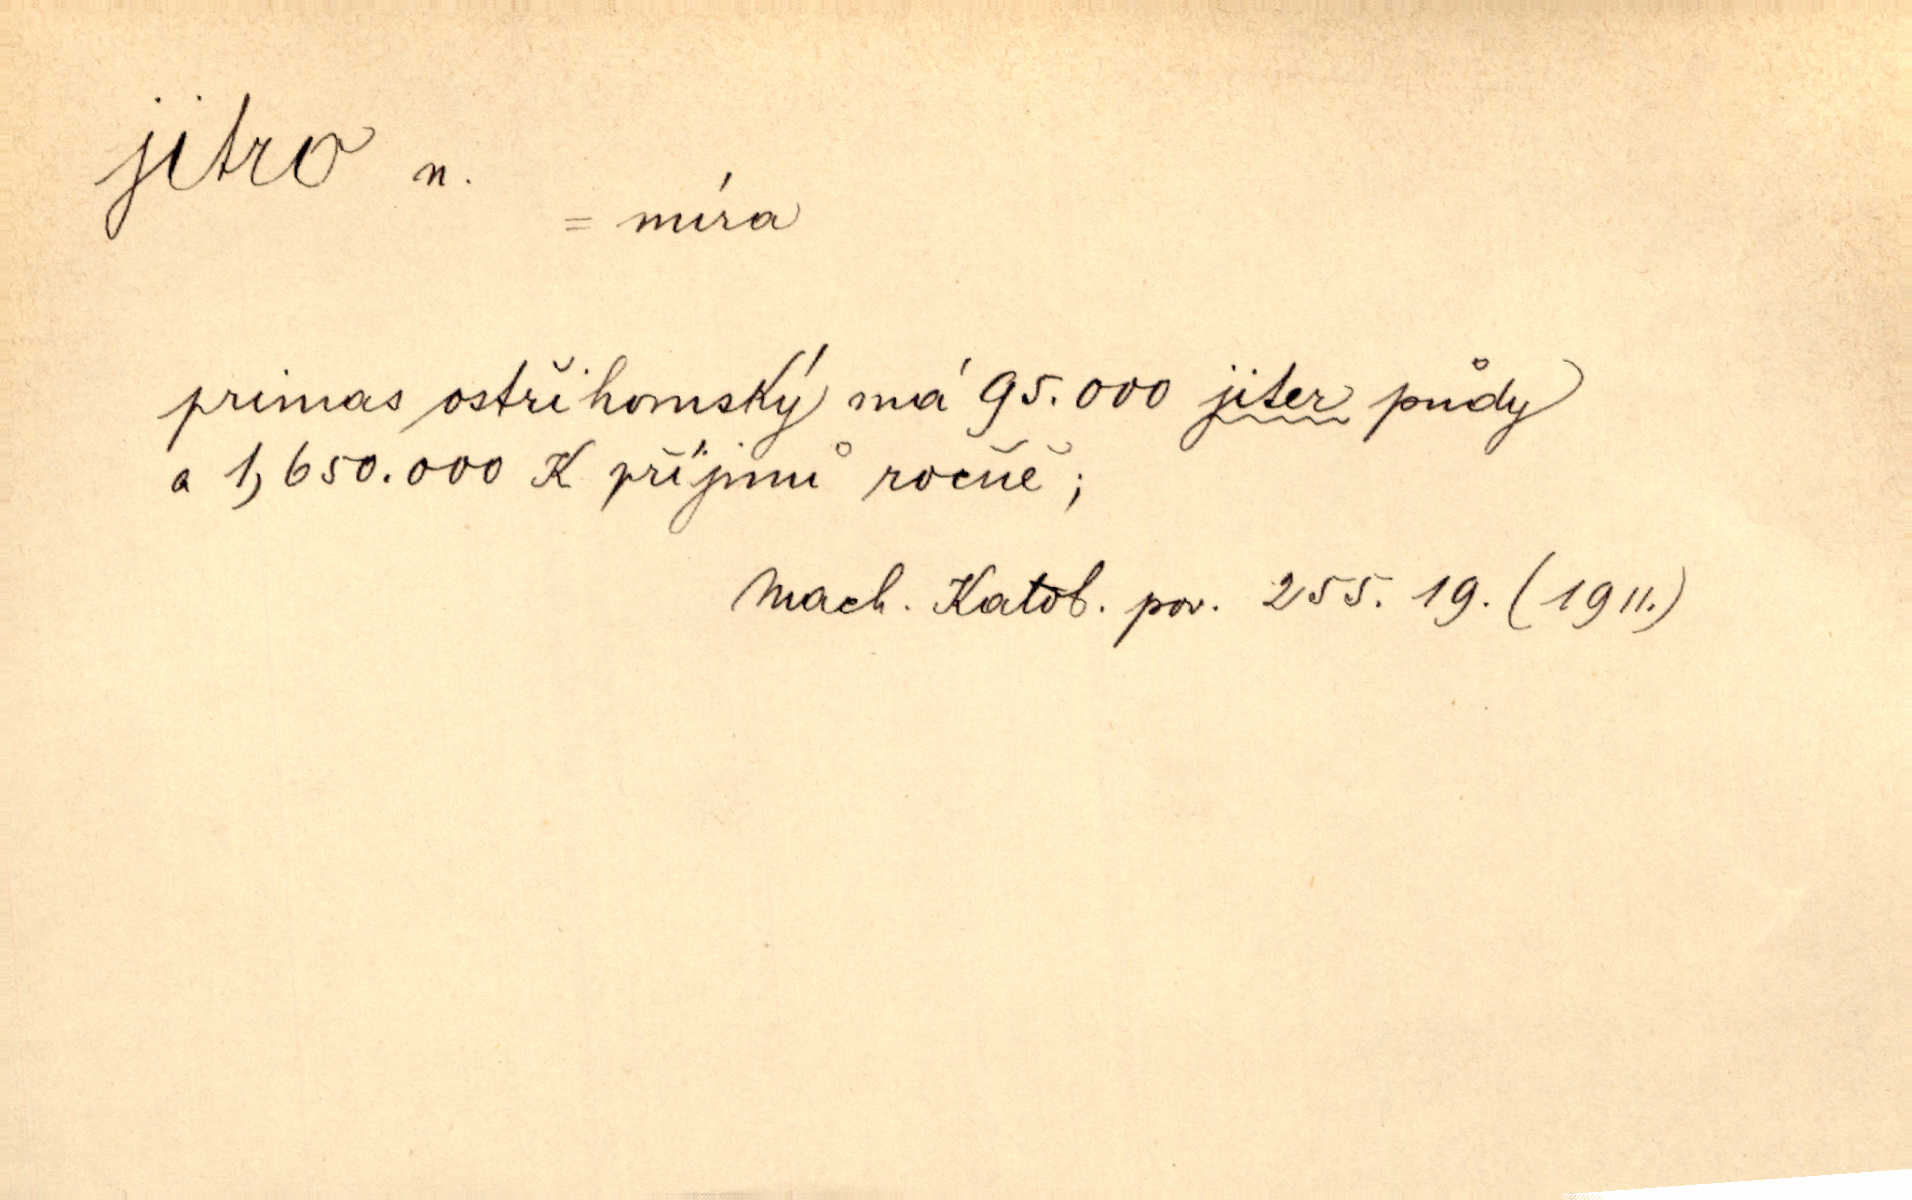 jitro n.
= míra
primas ostřihomský má 95.000 jiter půdy
a 1,650.000 K příjmů ročně;
Mach. Katol. pov. 255. 19. (1911.)